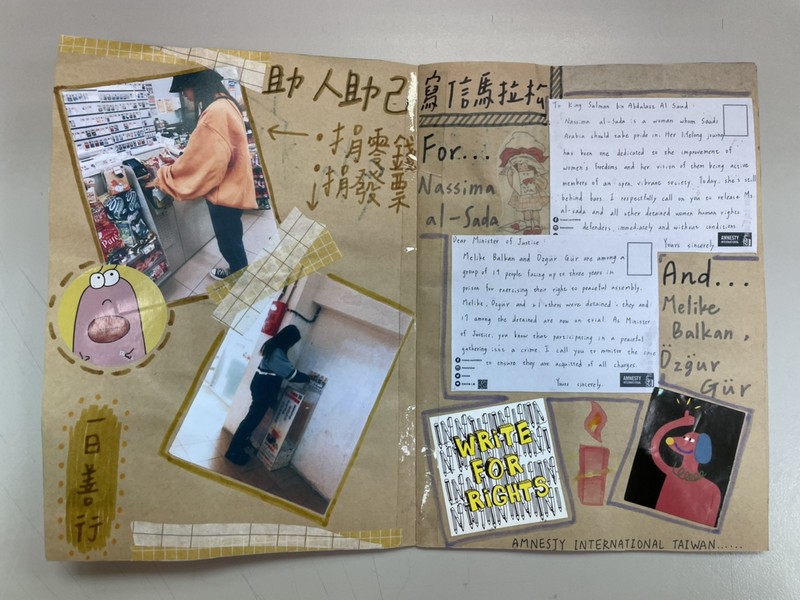 助人助己
捐零錢
捐發票
一日善行
寫信馬拉松
For...
Nassima
al-Sada
To King Salman bin Abdulaziz Al Saud:
Nassima al-Sada is a woman whom Saudi
Arabia should take pride in. Her lifelong journey
has been one dedicated to the improvement of
women's freedoms and her vision of them being active
members of an open, vibrant society. Today, she's still
behind bars. I respectfully call on you to release Ms
al-sada and all other detained women human rights
defenders, immediately and without condition.
Yours sincerely.
AMNESTY
INTERNATIONAL
Dear Minister of Justice:
Melike Balkan and Özgür Gür are among a
group of 19 people facing up to three years in
prison for exercising their right to peaceful assembly.
Melike, Özgür and others were detained. they and
17 among the detained are now on trial. As Minister
of Justice, you know that participating in a peaceful
gathering isn't a crime. I call you to monitor the case
to ensure they are acquitted of all charges.
Yours sincerely.
AMNESTY
INTERNATIONAL
And...
Melike
Balkan,
Özgür
Gür
WRITE
FOR
RiGHTS
AMNESTY INTERNATIONAL TAIWAN......